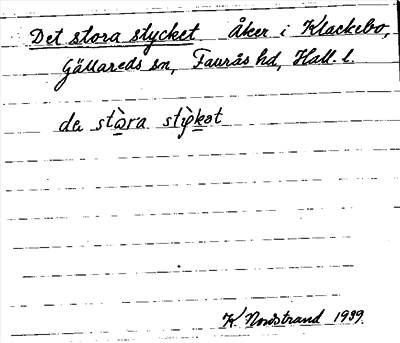 Det stora stycket Åker i Klackebo,
Gällareds sn, Faurås hd, Hall. l.
de stò̱ra stỳḵət
K. Nordstrand 1939.